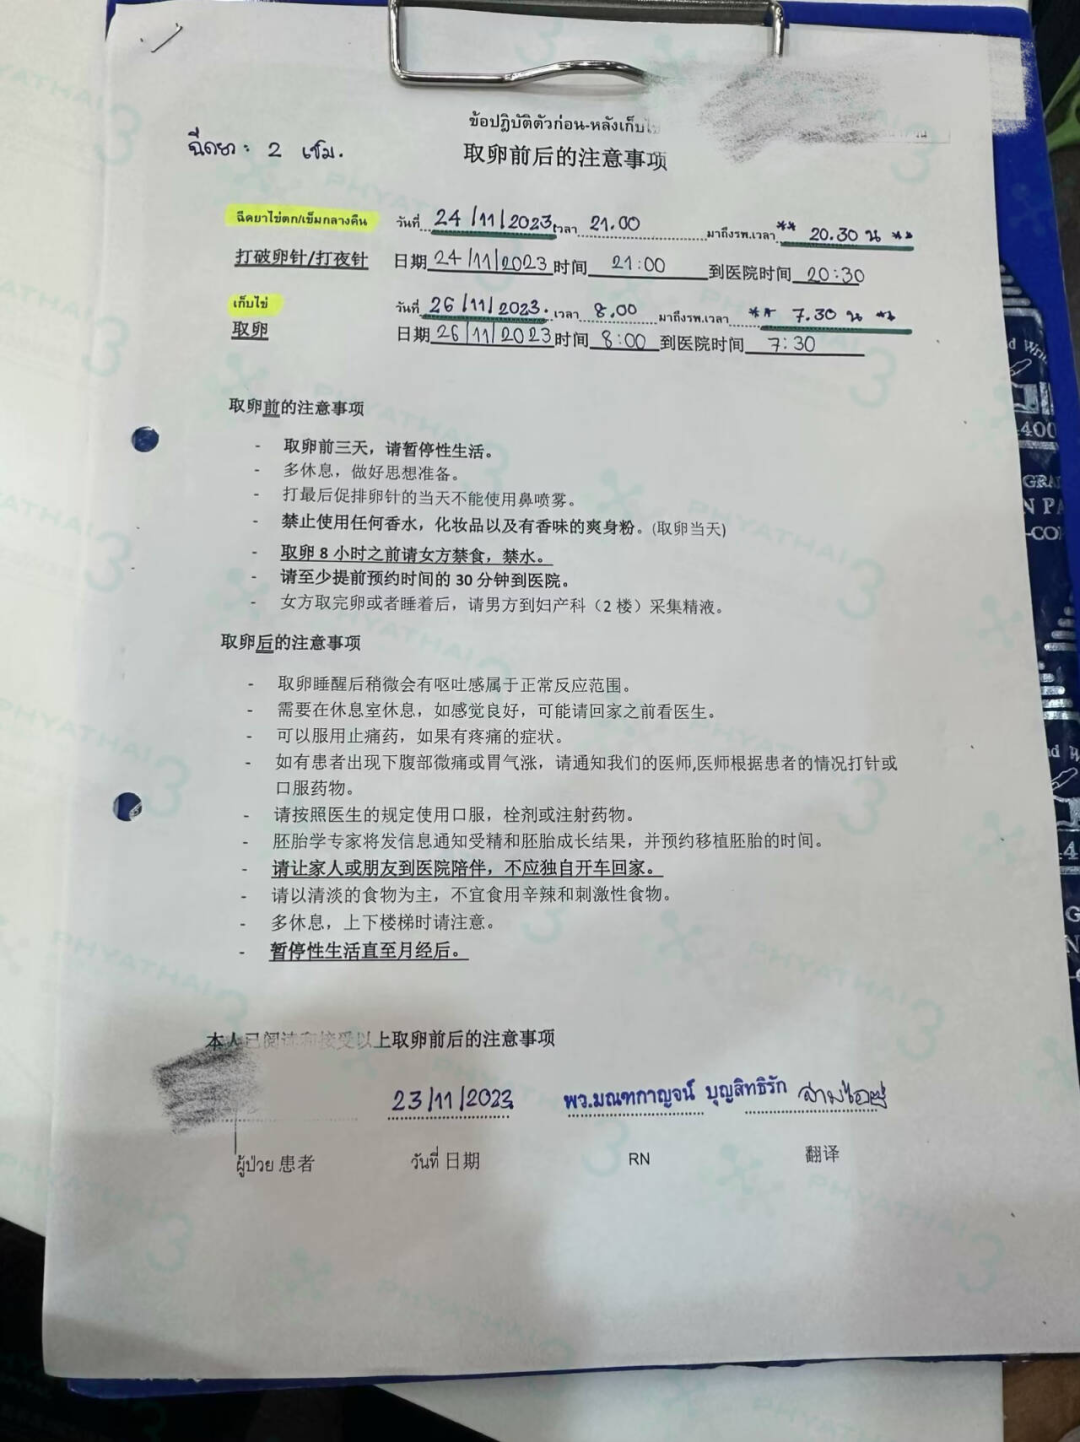 ข้อปฏิบัติตัวก่อน-หลังเก็บไข่
ฉีดยา: 2 เข็ม.
取卵前后的注意事项
ฉีดยาไข่ตก/เข็มกลางคืน วันที่ 24/11/2023 เวลา 21.00 มาถึงรพ.เวลา ** 20.30 น **
打破卵针/打夜针 日期 24/11/2023 时间 21:00 到医院时间 20:30
เก็บไข่ วันที่ 26/11/2023. เวลา 8.00 มาถึงรพ.เวลา ** 7.30 น **
取卵 日期 26/11/2023 时间 8:00 到医院时间 7:30
取卵前的注意事项
- 取卵前三天，请暂停性生活。
- 多休息，做好思想准备。
- 打最后促排卵针的当天不能使用鼻喷雾。
- 禁止使用任何香水，化妆品以及有香味的爽身粉。(取卵当天)
- 取卵 8 小时之前请女方禁食，禁水。
- 请至少提前预约时间的 30 分钟到医院。
- 女方取完卵或者睡着后，请男方到妇产科（2 楼）采集精液。
取卵后的注意事项
- 取卵睡醒后稍微会有呕吐感属于正常反应范围。
- 需要在休息室休息，如感觉良好，可能请回家之前看医生。
- 可以服用止痛药，如果有疼痛的症状。
- 如有患者出现下腹部微痛或胃气涨，请通知我们的医师,医师根据患者的情况打针或
口服药物。
- 请按照医生的规定使用口服，栓剂或注射药物。
- 胚胎学专家将发信息通知受精和胚胎成长结果，并预约移植胚胎的时间。
- 请让家人或朋友到医院陪伴，不应独自开车回家。
- 请以清淡的食物为主，不宜食用辛辣和刺激性食物。
- 多休息，上下楼梯时请注意。
- 暂停性生活直至月经后。
本人已阅读和接受以上取卵前后的注意事项
23/11/2023 พว.มณฑกาญจน์ บุญสิทธิรัก
ผู้ป่วย 患者 วันที่ 日期 RN 翻译